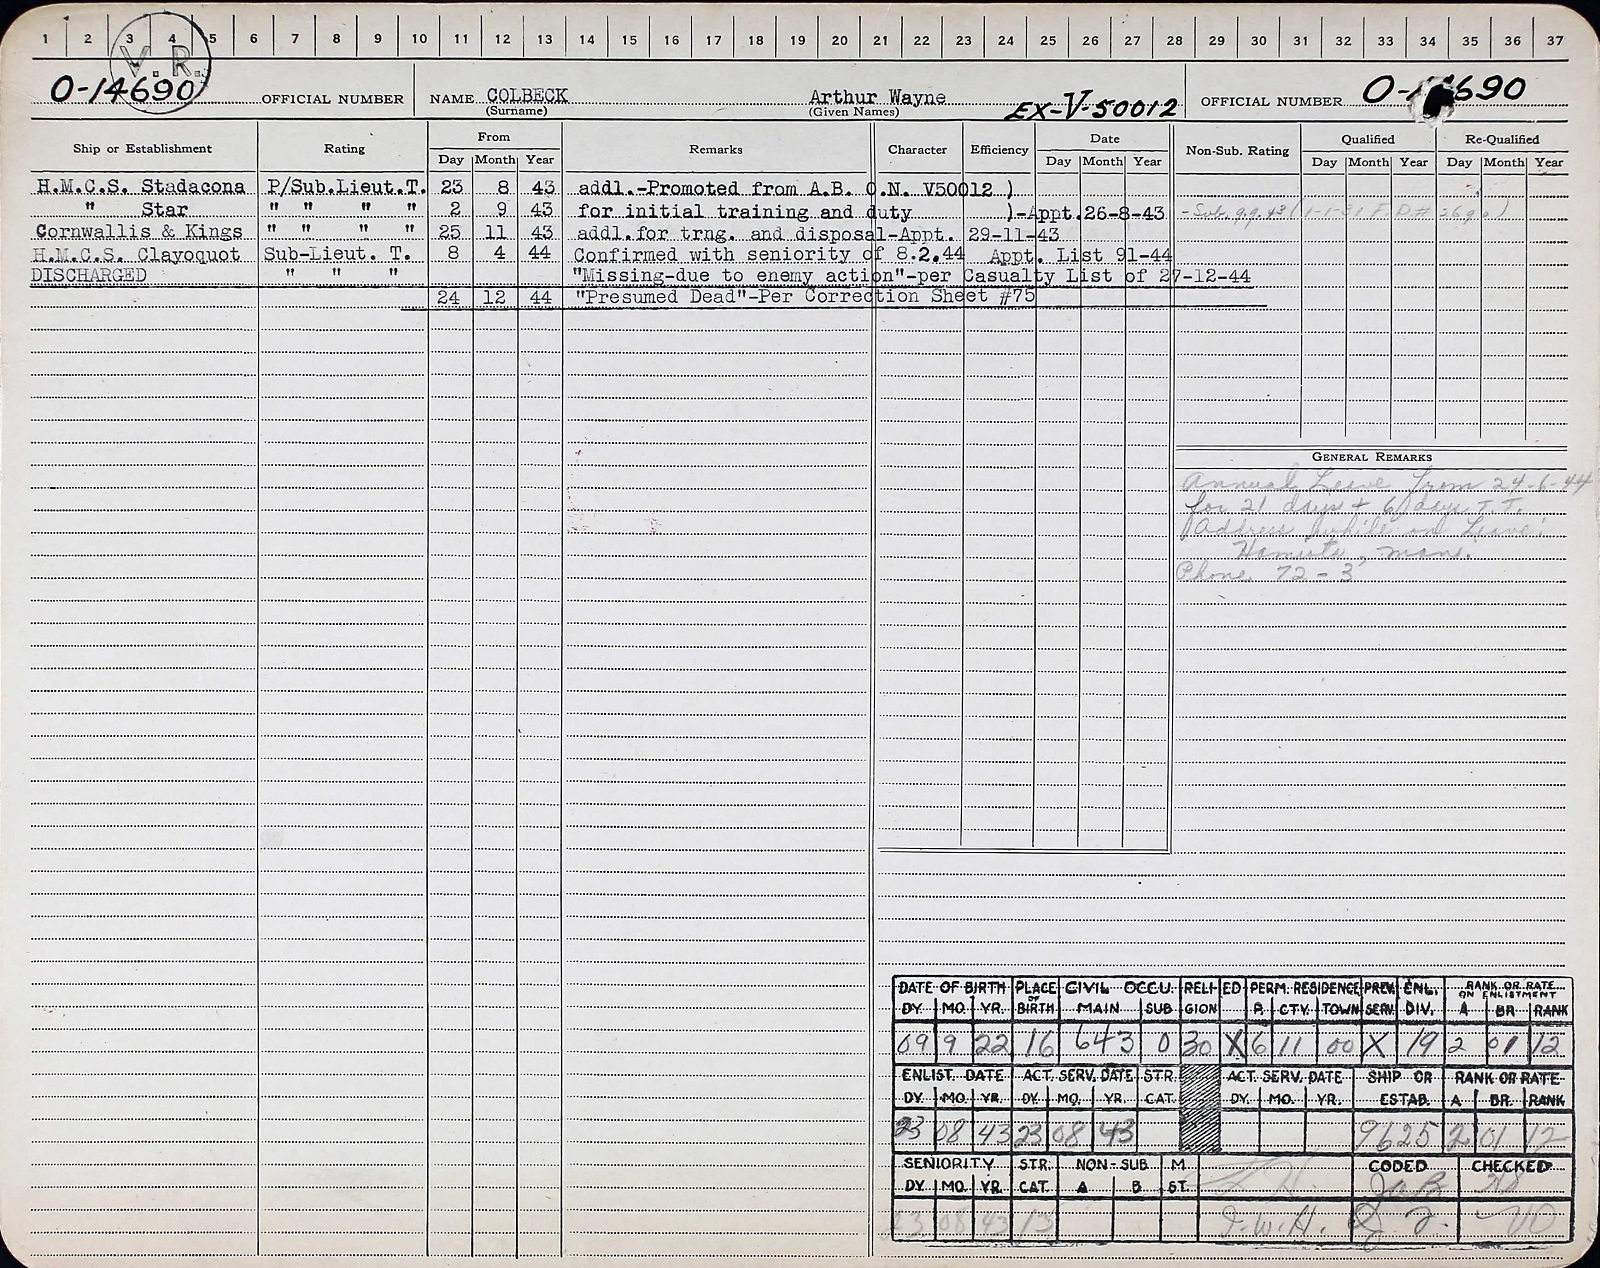 1 2 3 4 5 6 7 8 9 10 11 12 13 14 15 16 17 18 19 20 21 22 23 24 25 26 27 28 29 30 31 32 33 34 35 36 37
V.R.
O-14690 OFFICIAL NUMBER NAME COLBECK Arthur Wayne EX-V-50012 OFFICIAL NUMBER O- 690
(Surname) (Given Names)
Ship or Establishment Rating From Remarks Character Efficiency Date Non-Sub. Rating Qualified Re-Qualified
Day Month Year Day Month Year Day Month Year Day Month Year
H.M.C.S. Stadacona P/Sub.Lieut.T. 23 8 43 addl.-Promoted from A.B. O.N. V50012 )
" Star " " " " 2 9 43 for initial training and duty )-Appt.26-8-43 -Sub. 9.9.43
Cornwallis & Kings " " " " 25 11 43 addl.for trng. and disposal-Appt. 29-11-43
H.M.C.S. Clayoquot Sub-Lieut. T. 8 4 44 Confirmed with seniority of 8.2.44 Appt. List 91-44
DISCHARGED " " " "Missing-due to enemy action"-per Casualty List of 27-12-44
24 12 44 "Presumed Dead"-Per Correction Sheet #75
GENERAL REMARKS
Annual Leave from 24-6-44
for 21 days + 6 days T.T.
Address while on Leave:
Hamiota, Man.
Phone 72-3
DATE OF BIRTH PLACE OF BIRTH CIVIL OCCU. RELIGION ED PERM. RESIDENCE PREV. SERV. ENL. DIV. RANK OR RATE ON ENLISTMENT
DY. MO. YR. MAIN SUB P. CTY. TOWN A BR RANK
09 9 22 16 643 0 30 X 6 11 00 X 19 2 01 12
ENLIST. DATE ACT. SERV. DATE STR. ACT. SERV. DATE SHIP OR RANK OR RATE
DY. MO. YR. DY. MO. YR. CAT. DY. MO. YR. ESTAB. A BR. RANK
23 08 43 23 08 43 9625 2 01 12
SENIORITY STR. NON-SUB M. CODED CHECKED
DY. MO. YR. CAT. A B ST.
23 08 43 13 J.W.H.